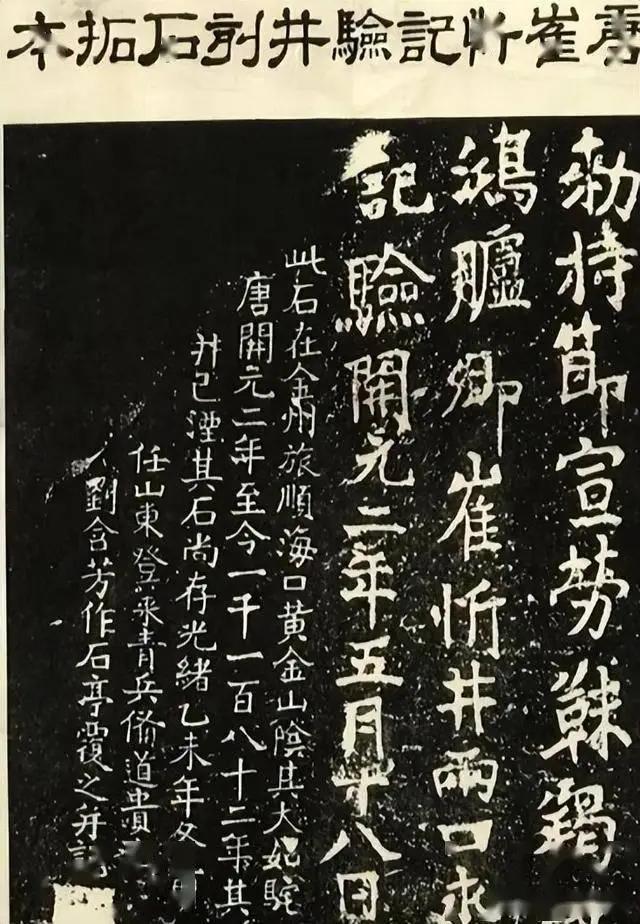 唐崔忻記驗井刻石拓本
勅持節宣勞靺羯
鴻臚卿崔忻井兩口永
記驗開元二年五月十八日
此石在金州旅順海口黃金山陰其大如駝
唐開元二年至今一千一百八十二年其
井已湮其石尚存光緒乙未年冬前
任山東登萊青兵備道貴
劉含芳作石亭覆之并記